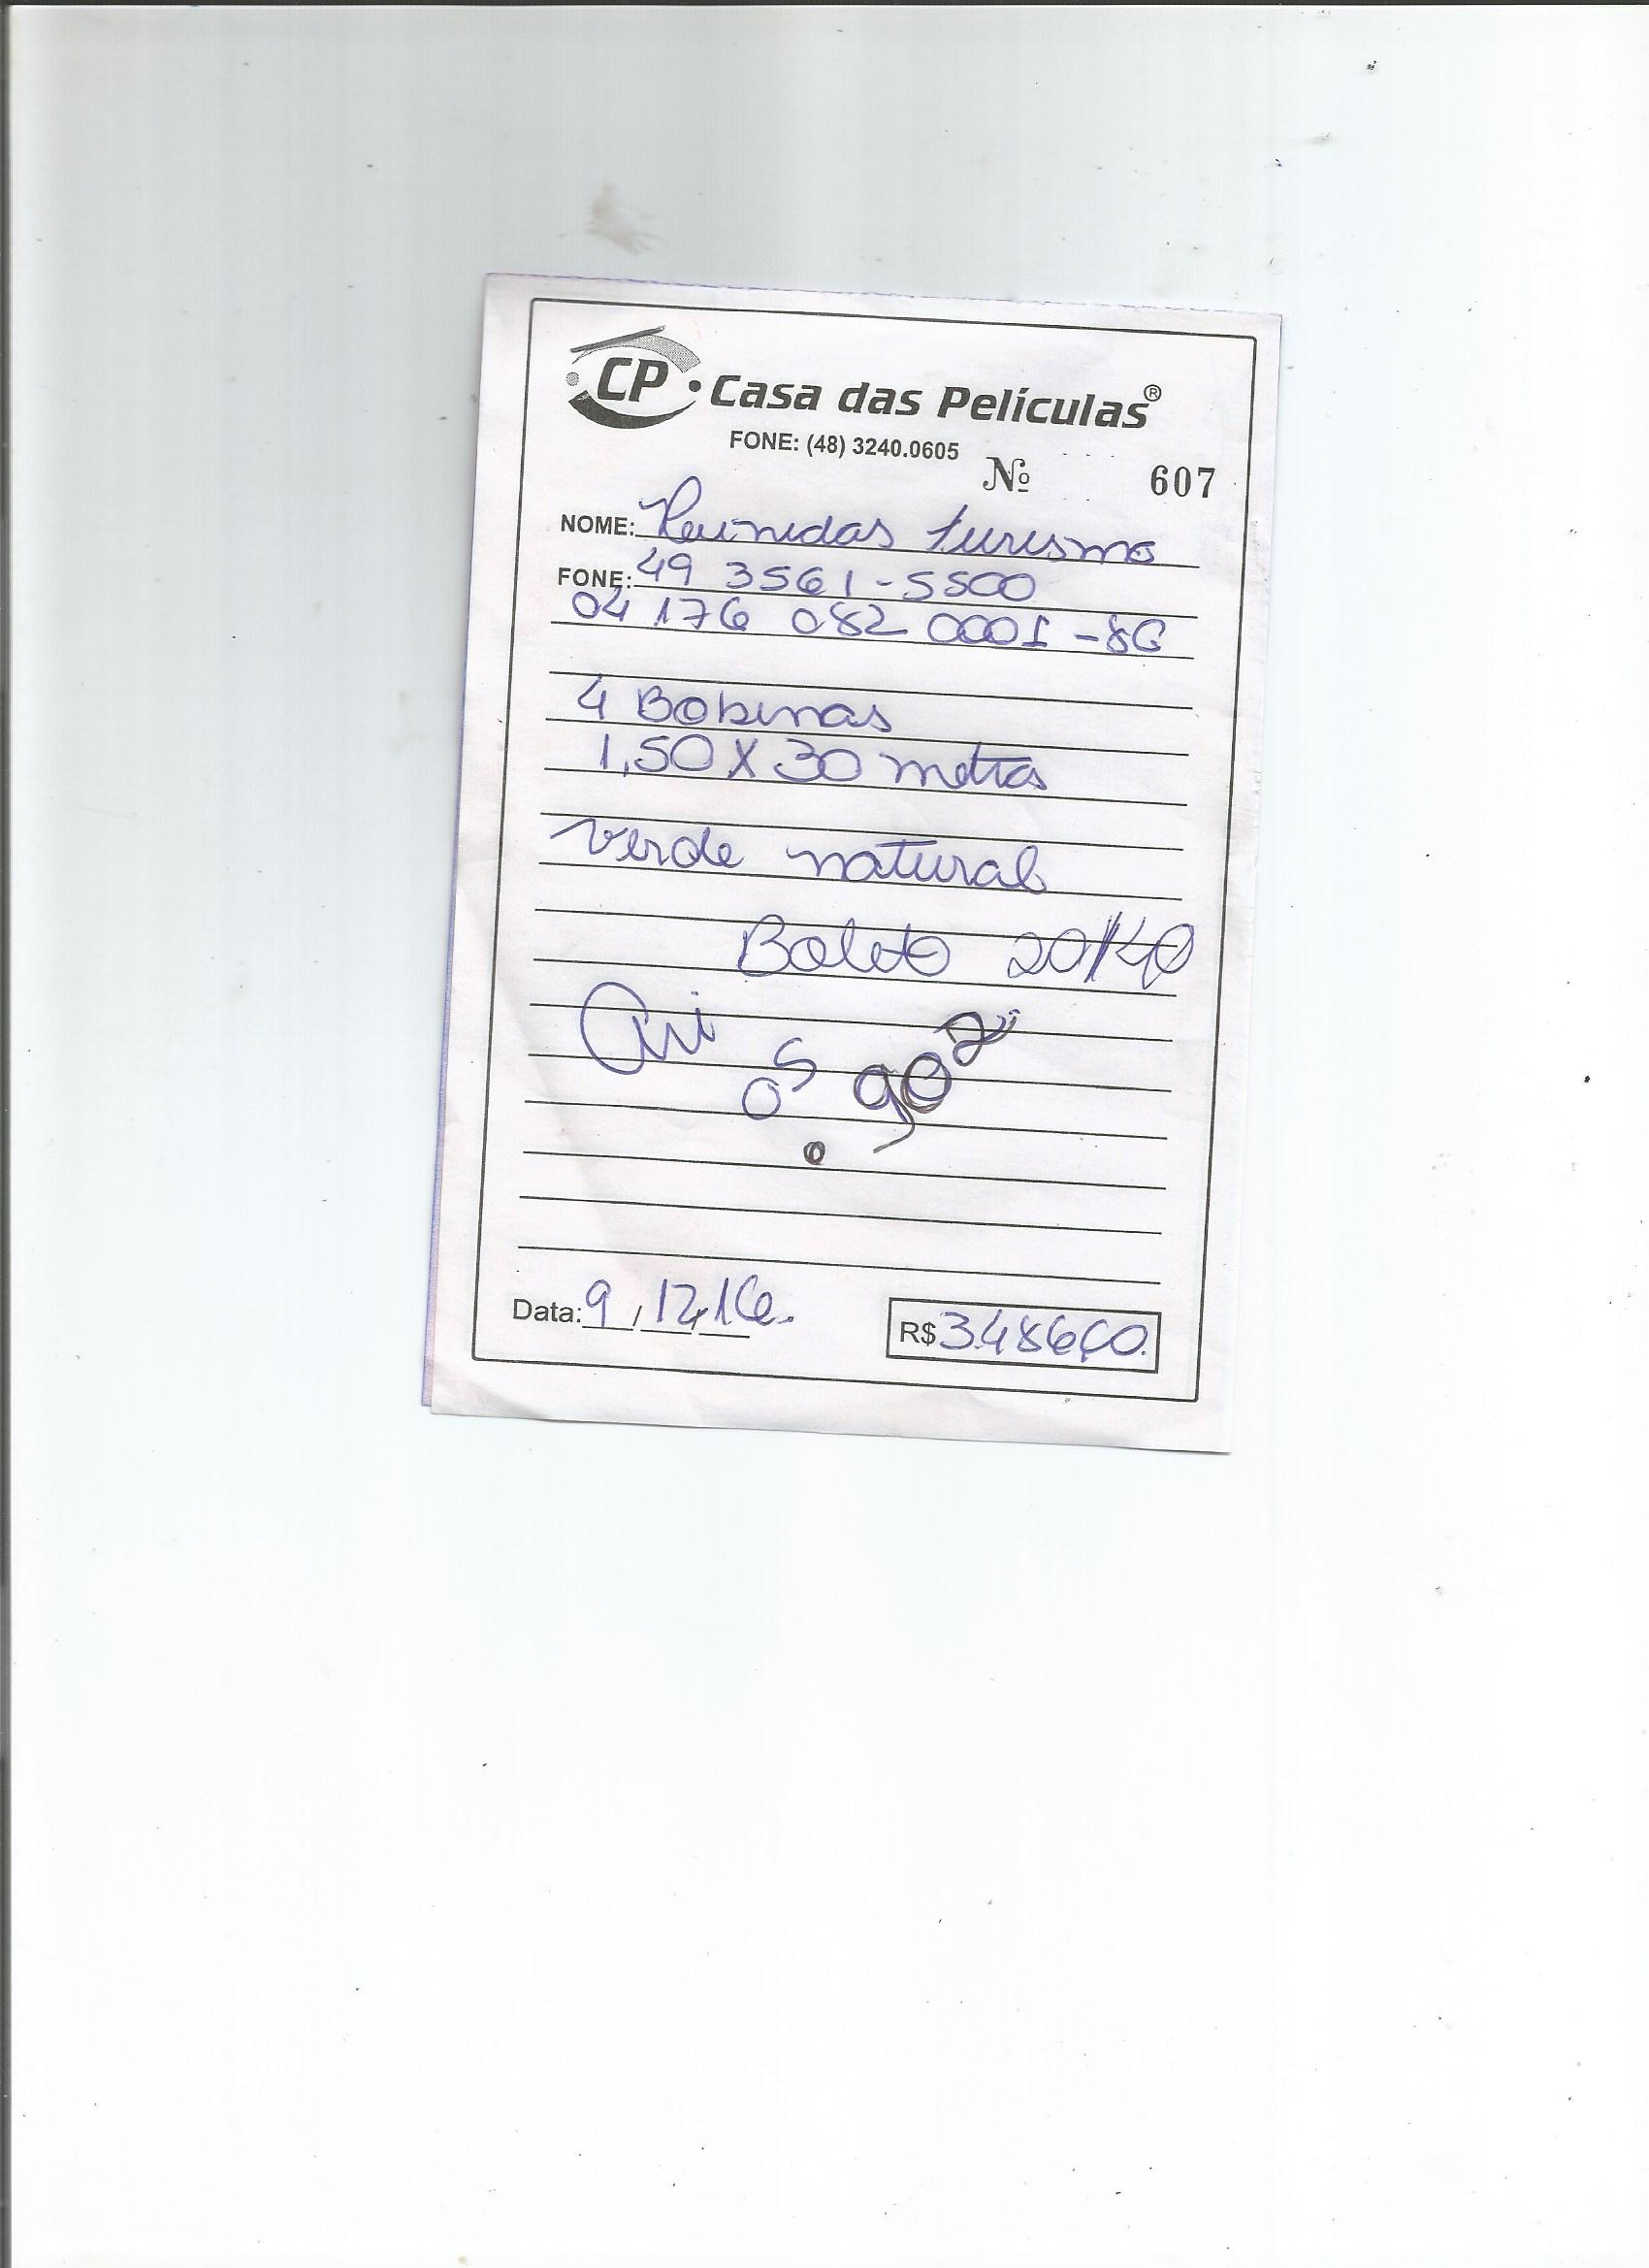 CP
Casa das Películas®
FONE: (48) 3240.0605
Nº 607
NOME: Reunidas turismo
FONE: 49 3561-5500
04 176 082 0001 -86
4 Bobinas
1,50 X 30 metros
verde natural
Boleto 20/40
Ari
os 90
Data: 9 / 12 / 16.
R$ 3.486,00.